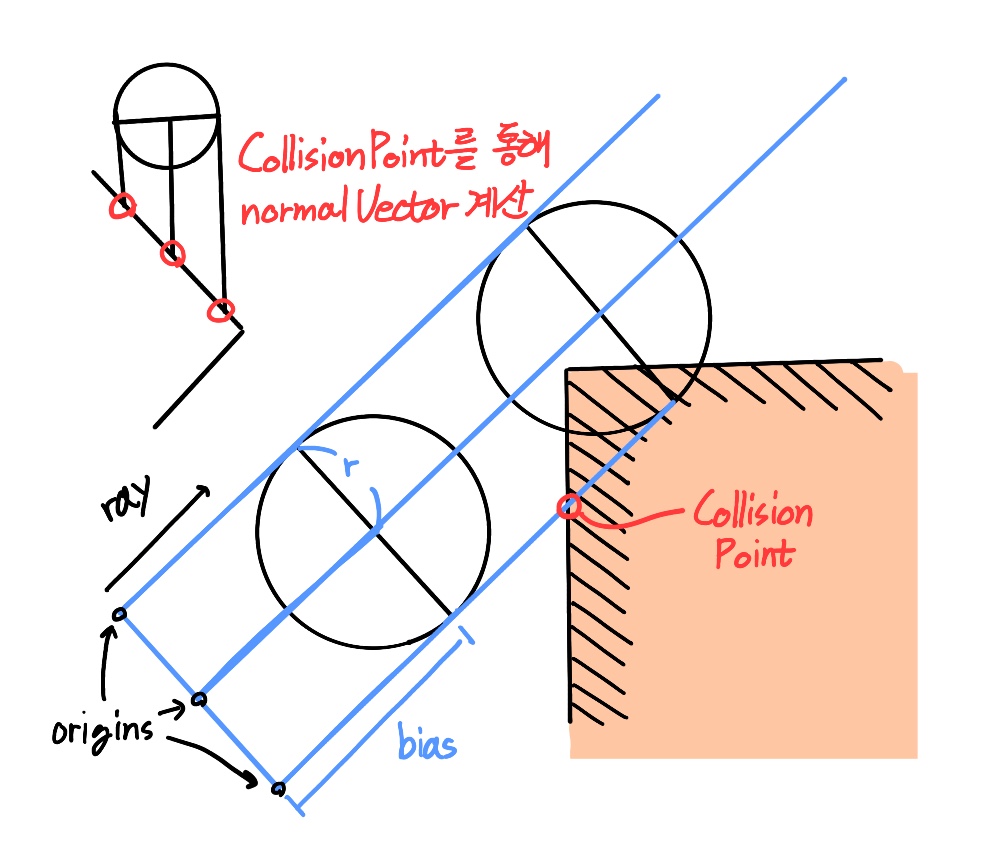 Collision Point를 통해
normal Vector 계산
r
ray
Collision
Point
origins
bias